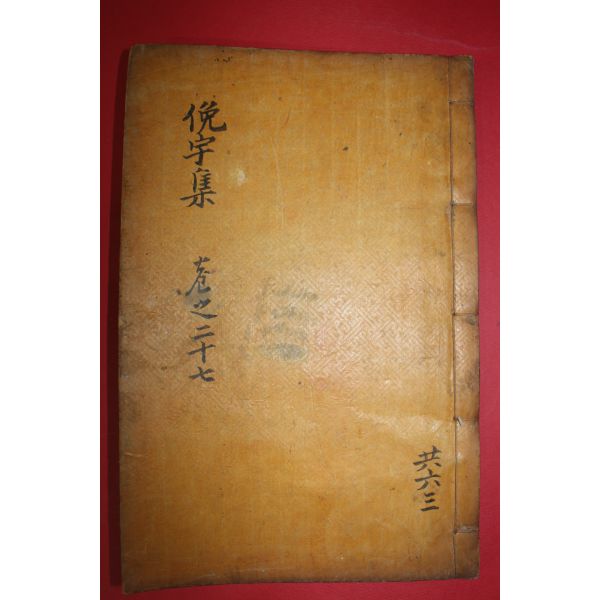 俛宇集
卷之二十七
共六三